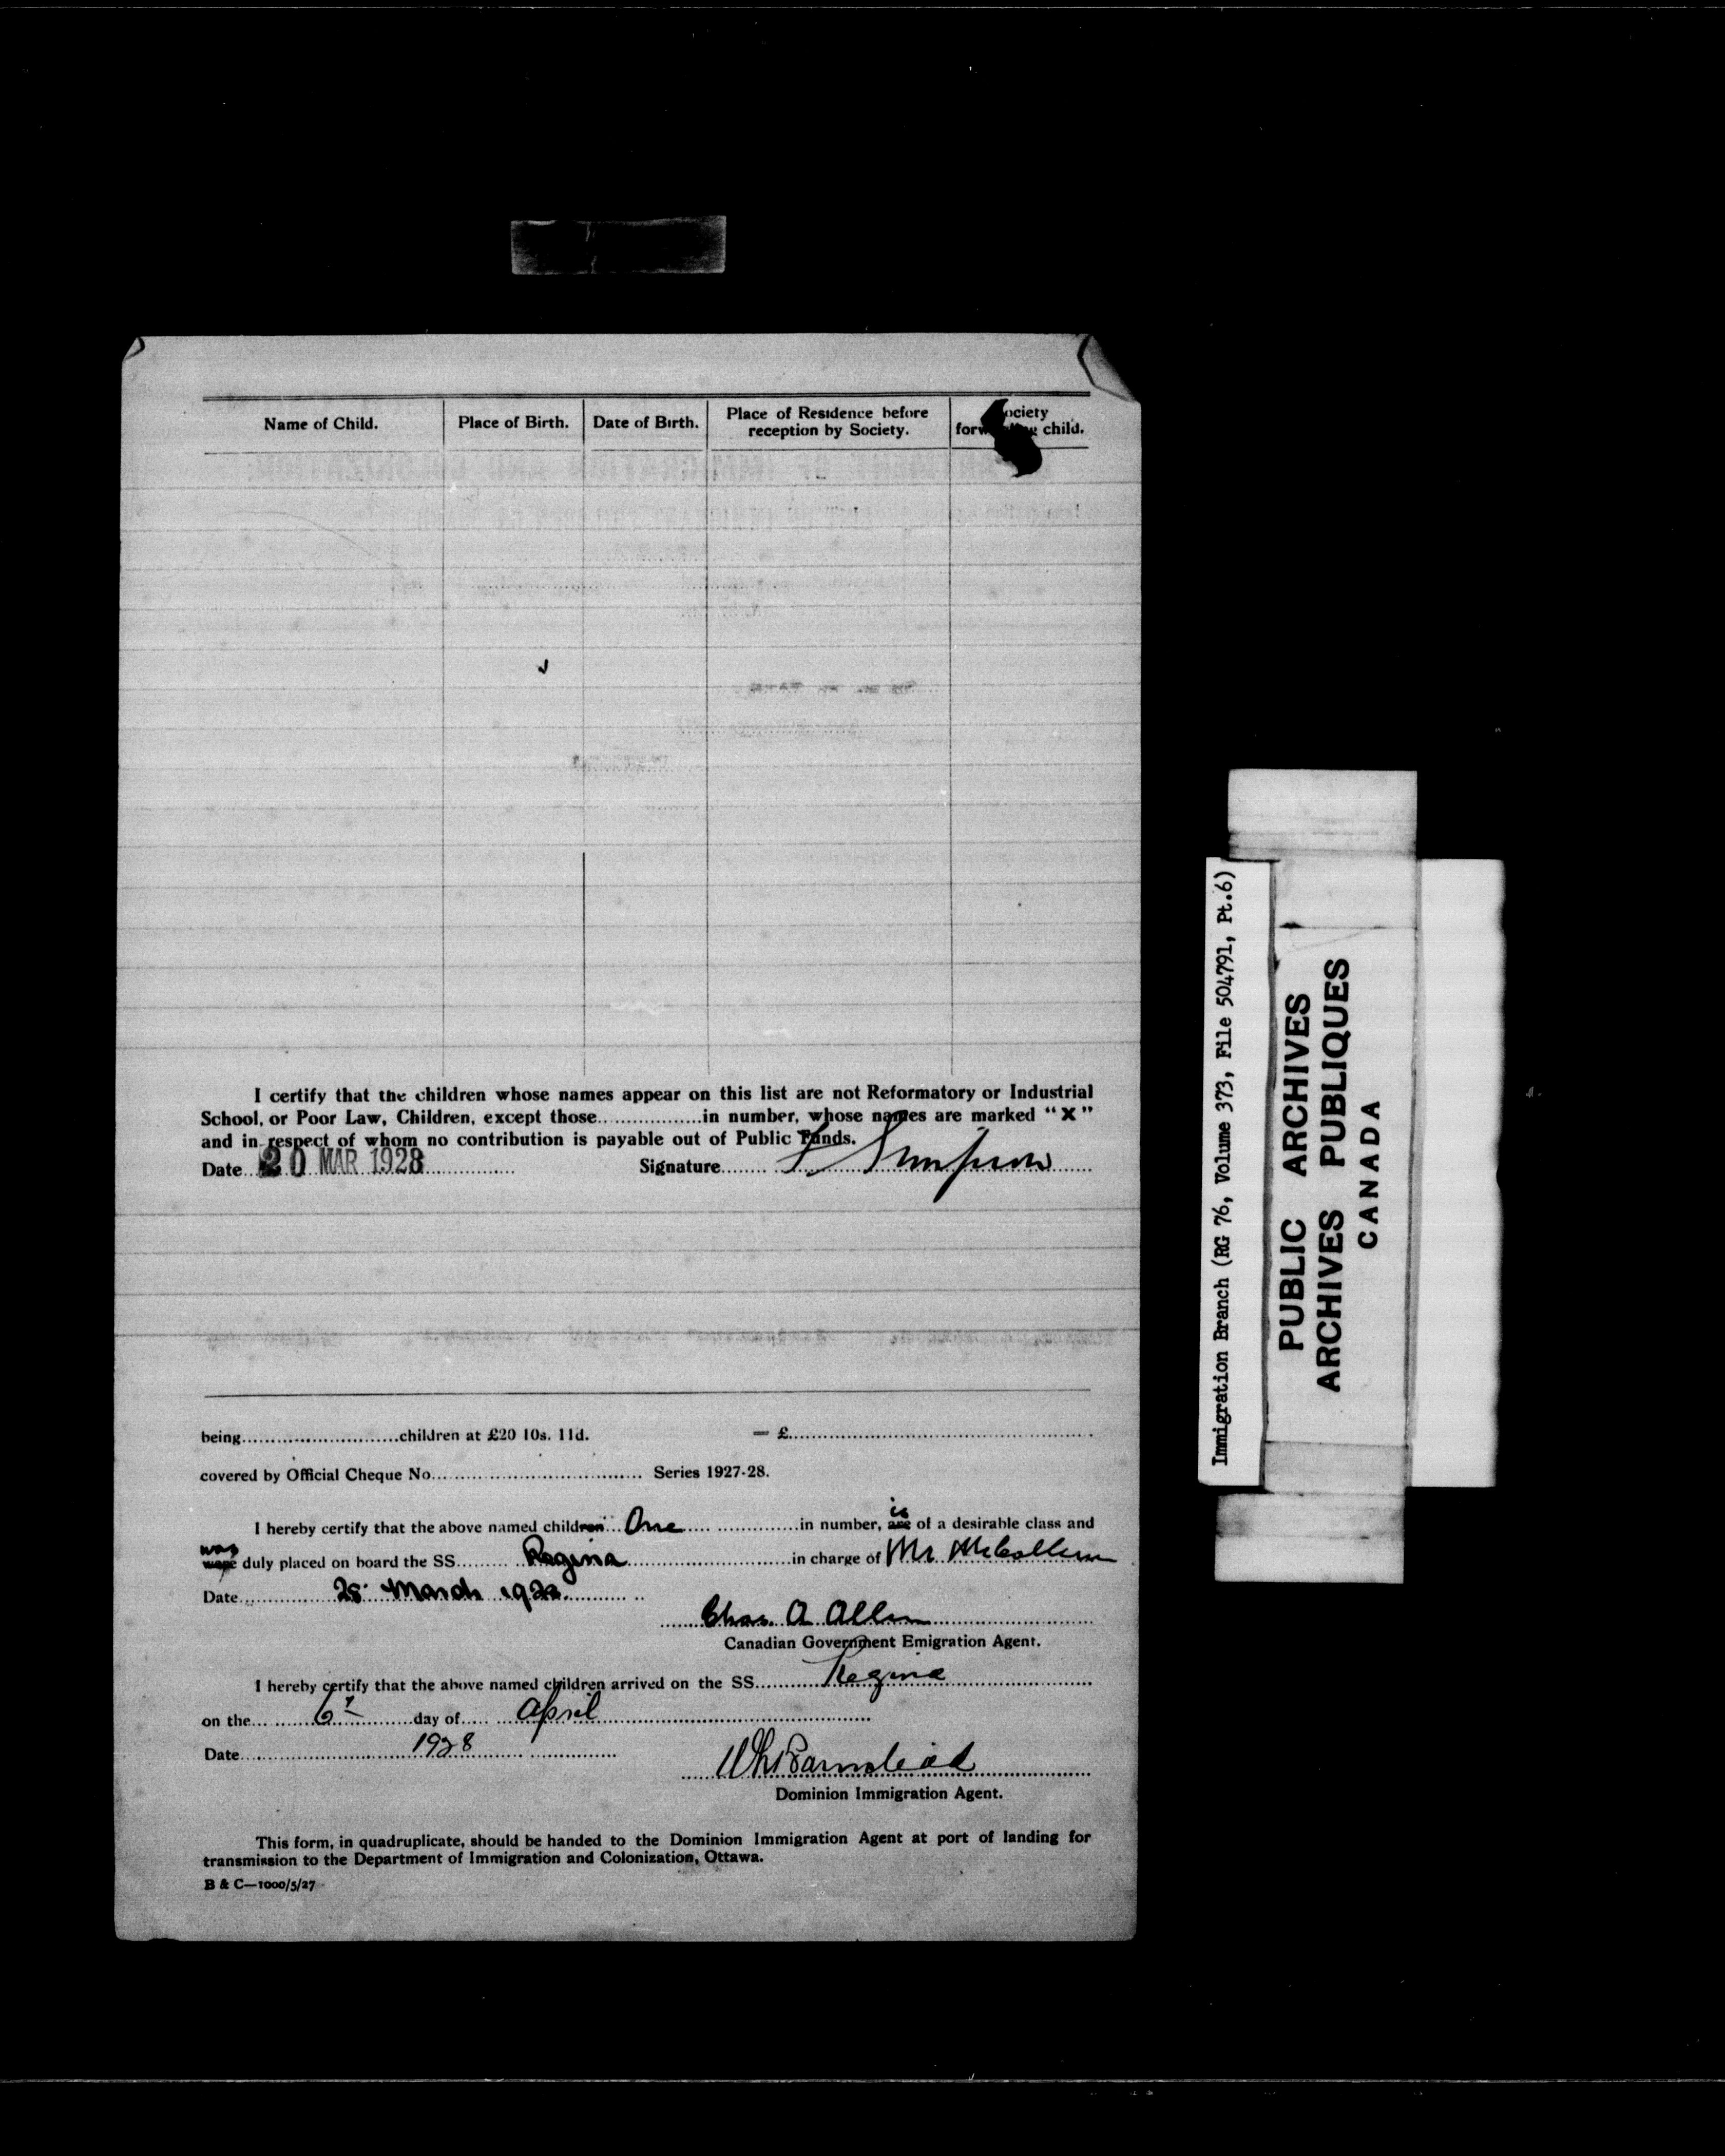 Name of Child.
Place of Birth.
Date of Birth.
Place of Residence before
reception by Society.
Society
forwarding child.
I certify that the children whose names appear on this list are not Reformatory or Industrial
School, or Poor Law, Children, except those..................in number, whose names are marked "X"
and in respect of whom no contribution is payable out of Public Funds.
Date 20 MAR 1928 Signature F Simpson
being...........................children at £20 10s. 11d. = £......................................................
covered by Official Cheque No.................................... Series 1927-28.
is
I hereby certify that the above named children One in number, are of a desirable class and
was
were duly placed on board the SS. Regina in charge of Mr McCollum
Date 28 March 1928.
Chas. A Allen
Canadian Government Emigration Agent.
I hereby certify that the above named children arrived on the SS. Regina
on the 6th day of April
Date 1928
Wh Barnstead
Dominion Immigration Agent.
This form, in quadruplicate, should be handed to the Dominion Immigration Agent at port of landing for
transmission to the Department of Immigration and Colonization, Ottawa.
B & C—1000/5/27
Immigration Branch (RG 76, Volume 373, File 504791, Pt.6)
PUBLIC ARCHIVES
ARCHIVES PUBLIQUES
CANADA